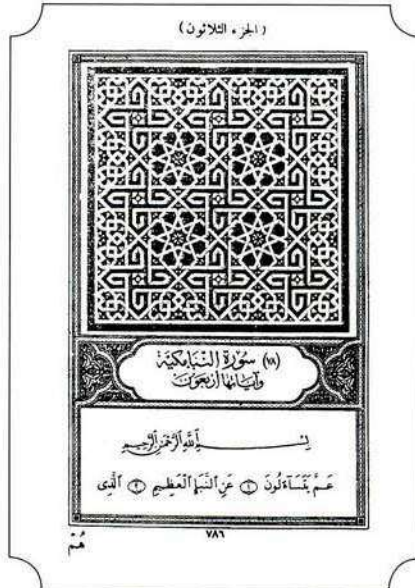 (الجزء الثلاثون)
(٧٨) سُورَة النَّبَأ مَكيَّة
وَآيَاتهَا أَرْبَعُونَ
بِسْمِ اللَّهِ الرَّحْمَٰنِ الرَّحِيمِ
عَمَّ يَتَسَآءَلُونَ ١ عَنِ النَّبَإِ الْعَظِيمِ ٢ الَّذِى
٧٨٦
هُمْ